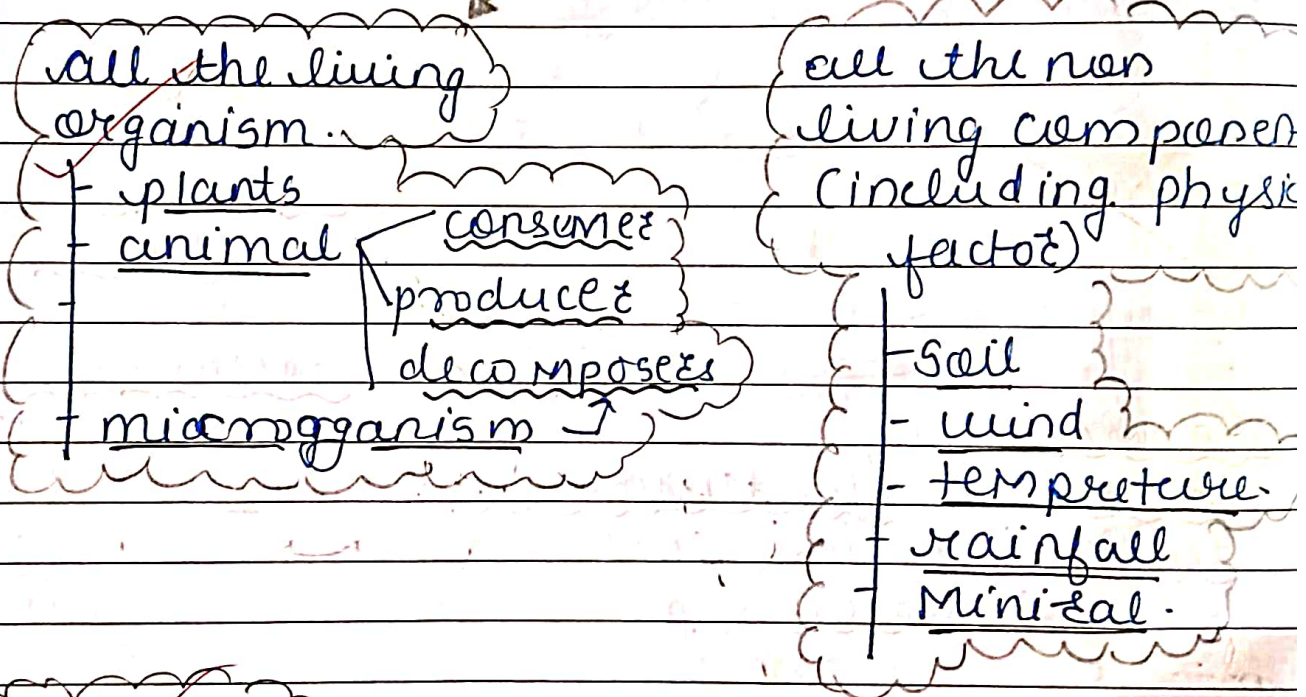 all the living
organism.
plants
animal
consumer
producer
decomposers
microgganism
all the non
living componen
(including physic
factor)
soil
wind
tempreture.
rainfall
Miniral.